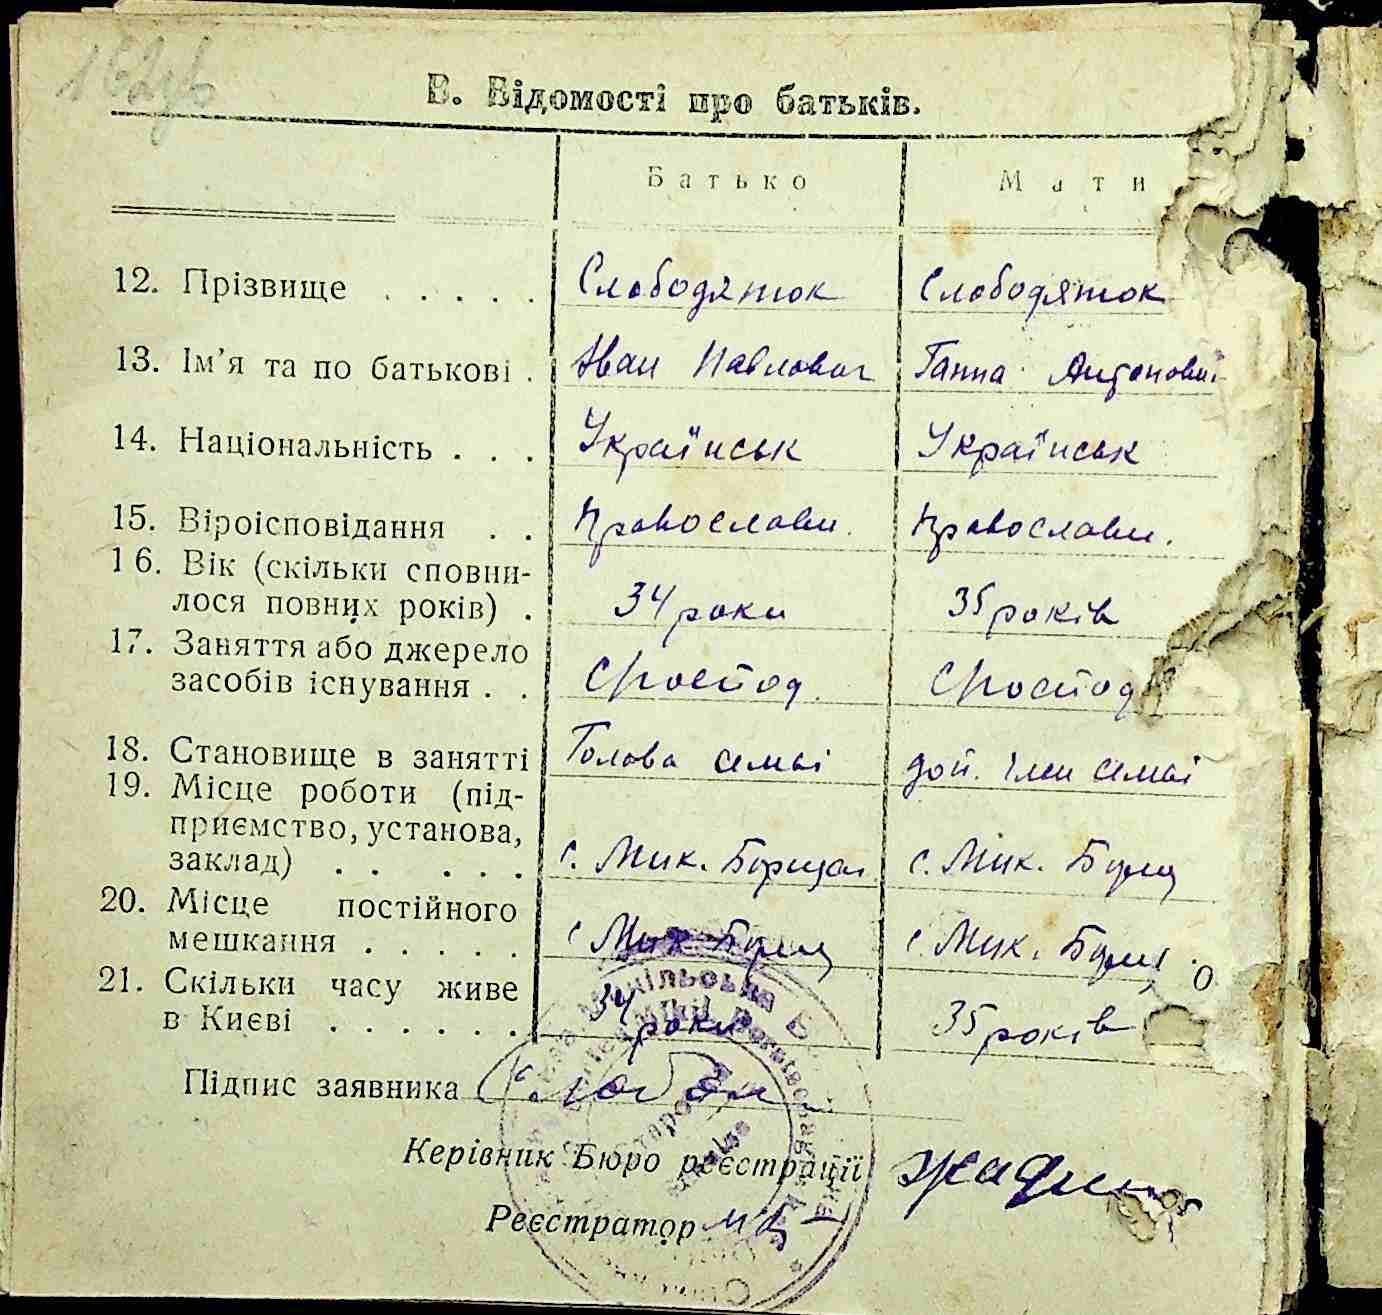 В. Відомості про батьків.
Батько Мати
12. Прізвище . . . . . Слободянюк Слободянюк
13. Ім'я та по батькові . Іван Павлович Ганна Антоновні
14. Національність . . . Українськ Українськ
15. Віроісповідання . . Православн. Православн.
16. Вік (скільки сповни-
лося повних років) . 34 роки 35 років
17. Заняття або джерело
засобів існування . .
18. Становище в занятті Голова семьі доп. член семьі
19. Місце роботи (під-
приємство, установа,
заклад) . . . . . с. Мик. Борщаг. с. Мик. Борщ
20. Місце постійного
мешкання . . . . . с. Мик. Борщ с. Мик. Борщ.
21. Скільки часу живе
в Києві . . . . . . 34 роки 35 років
Підпис заявника
Керівник Бюро реєстрації
Реєстратор